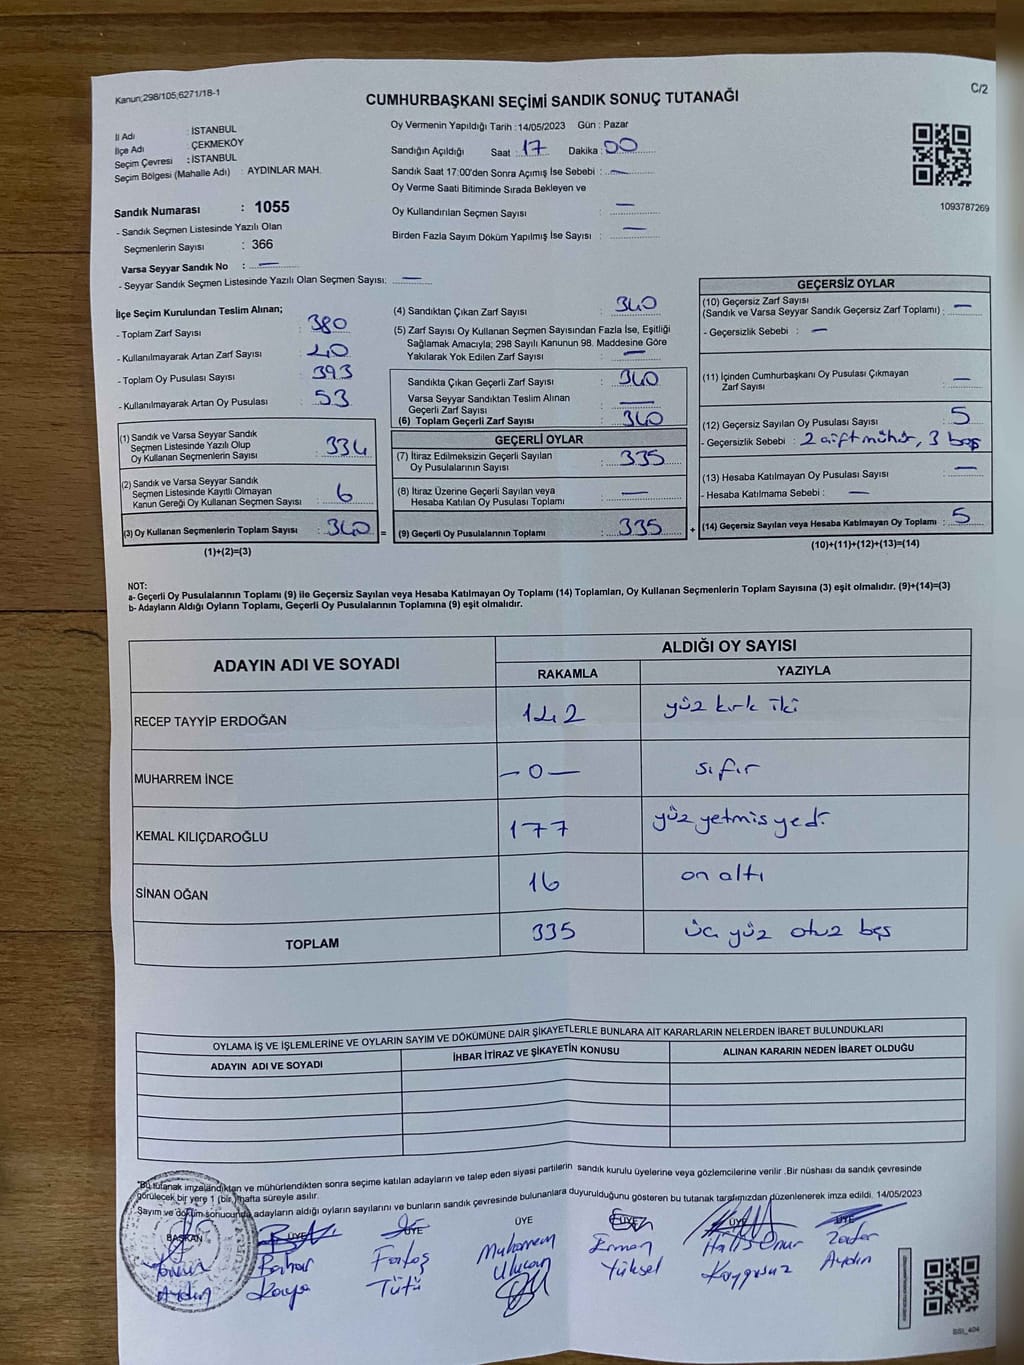 Kanun;298/105;6271/18-1
C/2
CUMHURBAŞKANI SEÇİMİ SANDIK SONUÇ TUTANAĞI
İl Adı : İSTANBUL
İlçe Adı : ÇEKMEKÖY
Seçim Çevresi : İSTANBUL
Seçim Bölgesi (Mahalle Adı) : AYDINLAR MAH.
Sandık Numarası : 1055
- Sandık Seçmen Listesinde Yazılı Olan
Seçmenlerin Sayısı : 366
Varsa Seyyar Sandık No : —
- Seyyar Sandık Seçmen Listesinde Yazılı Olan Seçmen Sayısı: —
Oy Vermenin Yapıldığı Tarih : 14/05/2023 Gün : Pazar
Sandığın Açıldığı Saat : 17 Dakika : 00
Sandık Saat 17:00'den Sonra Açımış İse Sebebi : —
Oy Verme Saati Bitiminde Sırada Bekleyen ve
Oy Kullandırılan Seçmen Sayısı : —
Birden Fazla Sayım Döküm Yapılmış İse Sayısı : —
1093787269
İlçe Seçim Kurulundan Teslim Alınan;
- Toplam Zarf Sayısı : 380
- Kullanılmayarak Artan Zarf Sayısı : 40
- Toplam Oy Pusulası Sayısı : 393
- Kullanılmayarak Artan Oy Pusulası : 53
(1) Sandık ve Varsa Seyyar Sandık
Seçmen Listesinde Yazılı Olup
Oy Kullanan Seçmenlerin Sayısı : 334
(2) Sandık ve Varsa Seyyar Sandık
Seçmen Listesinde Kayıtlı Olmayan
Kanun Gereği Oy Kullanan Seçmen Sayısı : 6
(3) Oy Kullanan Seçmenlerin Toplam Sayısı : 340 =
(1)+(2)=(3)
(4) Sandıktan Çıkan Zarf Sayısı : 340
(5) Zarf Sayısı Oy Kullanan Seçmen Sayısından Fazla İse, Eşitliği
Sağlamak Amacıyla; 298 Sayılı Kanunun 98. Maddesine Göre
Yakılarak Yok Edilen Zarf Sayısı : —
Sandıkta Çıkan Geçerli Zarf Sayısı : 340
Varsa Seyyar Sandıktan Teslim Alınan
Geçerli Zarf Sayısı : —
(6) Toplam Geçerli Zarf Sayısı : 340
GEÇERLİ OYLAR
(7) İtiraz Edilmeksizin Geçerli Sayılan
Oy Pusulalarının Sayısı : 335
(8) İtiraz Üzerine Geçerli Sayılan veya
Hesaba Katılan Oy Pusulası Toplamı : —
(9) Geçerli Oy Pusulalarının Toplamı : 335 +
GEÇERSİZ OYLAR
(10) Geçersiz Zarf Sayısı
(Sandık ve Varsa Seyyar Sandık Geçersiz Zarf Toplamı) : —
- Geçersizlik Sebebi : —
(11) İçinden Cumhurbaşkanı Oy Pusulası Çıkmayan
Zarf Sayısı : —
(12) Geçersiz Sayılan Oy Pusulası Sayısı : 5
- Geçersizlik Sebebi : 2 çift mühür, 3 boş
(13) Hesaba Katılmayan Oy Pusulası Sayısı : —
- Hesaba Katılmama Sebebi : —
(14) Geçersiz Sayılan veya Hesaba Katılmayan Oy Toplamı : 5
(10)+(11)+(12)+(13)=(14)
NOT:
a- Geçerli Oy Pusulalarının Toplamı (9) ile Geçersiz Sayılan veya Hesaba Katılmayan Oy Toplamı (14) Toplamları, Oy Kullanan Seçmenlerin Toplam Sayısına (3) eşit olmalıdır. (9)+(14)=(3)
b- Adayların Aldığı Oyların Toplamı, Geçerli Oy Pusulalarının Toplamına (9) eşit olmalıdır.
ADAYIN ADI VE SOYADI ALDIĞI OY SAYISI
RAKAMLA YAZIYLA
RECEP TAYYİP ERDOĞAN 142 yüz kırk iki
MUHARREM İNCE —0— sıfır
KEMAL KILIÇDAROĞLU 177 yüz yetmis yedi
SİNAN OĞAN 16 on altı
TOPLAM 335 üç yüz otuz beş
OYLAMA İŞ VE İŞLEMLERİNE VE OYLARIN SAYIM VE DÖKÜMÜNE DAİR ŞİKAYETLERLE BUNLARA AİT KARARLARIN NELERDEN İBARET BULUNDUKLARI
ADAYIN ADI VE SOYADI İHBAR İTİRAZ VE ŞİKAYETİN KONUSU ALINAN KARARIN NEDEN İBARET OLDUĞU
*Bu tutanak imzalandıktan ve mühürlendikten sonra seçime katılan adayların ve talep eden siyasi partilerin sandık kurulu üyelerine veya gözlemcilerine verilir .Bir nüshası da sandık çevresinde
görülecek bir yere 1 (bir) hafta süreyle asılır.
Sayım ve döküm sonucunda adayların aldığı oyların sayılarını ve bunların sandık çevresinde bulunanlara duyurulduğunu gösteren bu tutanak tarafımızdan düzenlenerek imza edildi. 14/05/2023
BAŞKAN ÜYE ÜYE ÜYE ÜYE ÜYE ÜYE
Bahar Muharrem Erman Halis Onur Zafer
Aydın Kaya Tütü Ulucan Yüksel Kaygusuz Aydın
BSI_404